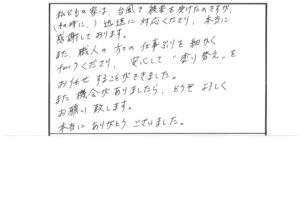 私どもの家は、台風で被害を受けたのですが、
(和時に、) 迅速に対応くださり、本当に
感謝しております。
また、職人の方の仕事ぶりを細かく
チェックくださり、安心して"塗り替え"を
お任せすることができました。
また機会がありましたら、どうぞよろしく
お願い致します。
本当にありがとうございました。